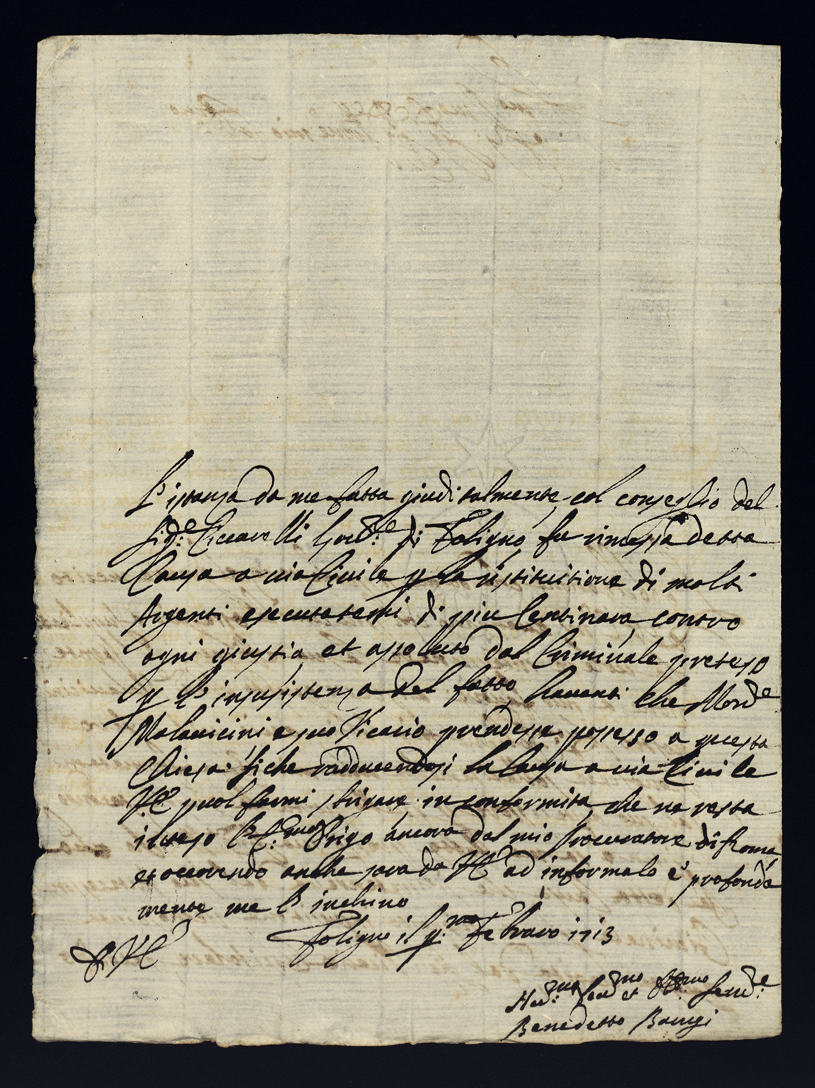 L'istanza da me fatta giuditialmente col conseglio del
Sig.e Ciccarelli Gov.re di Foligno fu rimessa detta
Causa a via Civile p la ristituitione di molti
Argenti esecutatemi di piu Centinara contro
ogni giustia et assoluto dal Criminale preteso
p l'insusistenza del fatto havanti che Mons.e
Malavicini e suo Vicario prendesse possesso a questa
Chiesa: siche radducendosi la Causa a via Civile
VE puol farmi strigare in conformita che ne resta
inteso Origo ancora dal mio procuratore di Roma
et occorendo anche sara da VE ad informalo e profonda
mente me l'inchino
Foligno il p.mo Febraro 1713
D VE
Hu.mo Dev.mo et Ob.mo Serv.e
Benedetto Barugi